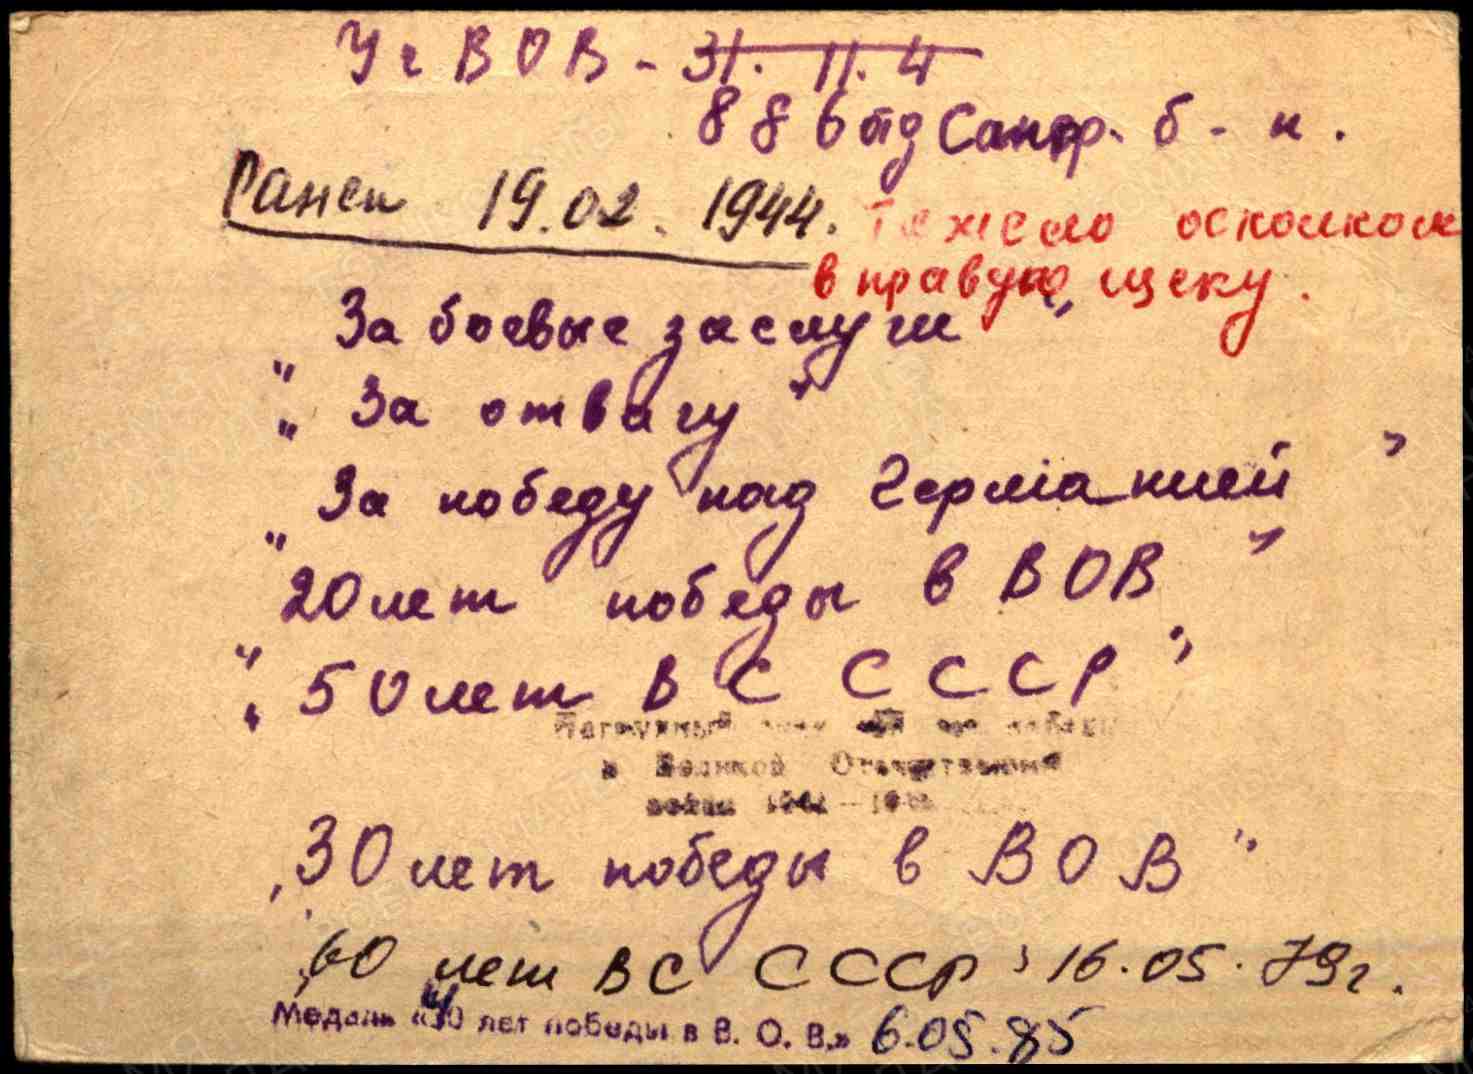 Уч ВОВ - 31. 11. 4
886 отд Сапр. б - н.
Ранен 19.02.1944. Тяжело осколком
в правую щеку.
За боевые заслуги"
"За отвагу"
"За победу над Германией"
"20 лет победы в ВОВ"
"50 лет ВС СССР"
Нагрудный знак победы
в Великой Отечественной
войне
"30 лет победы в ВОВ"
"60 лет ВС СССР" 16.05.79г.
Медаль «40 лет победы в В. О. В.» 6.05.85